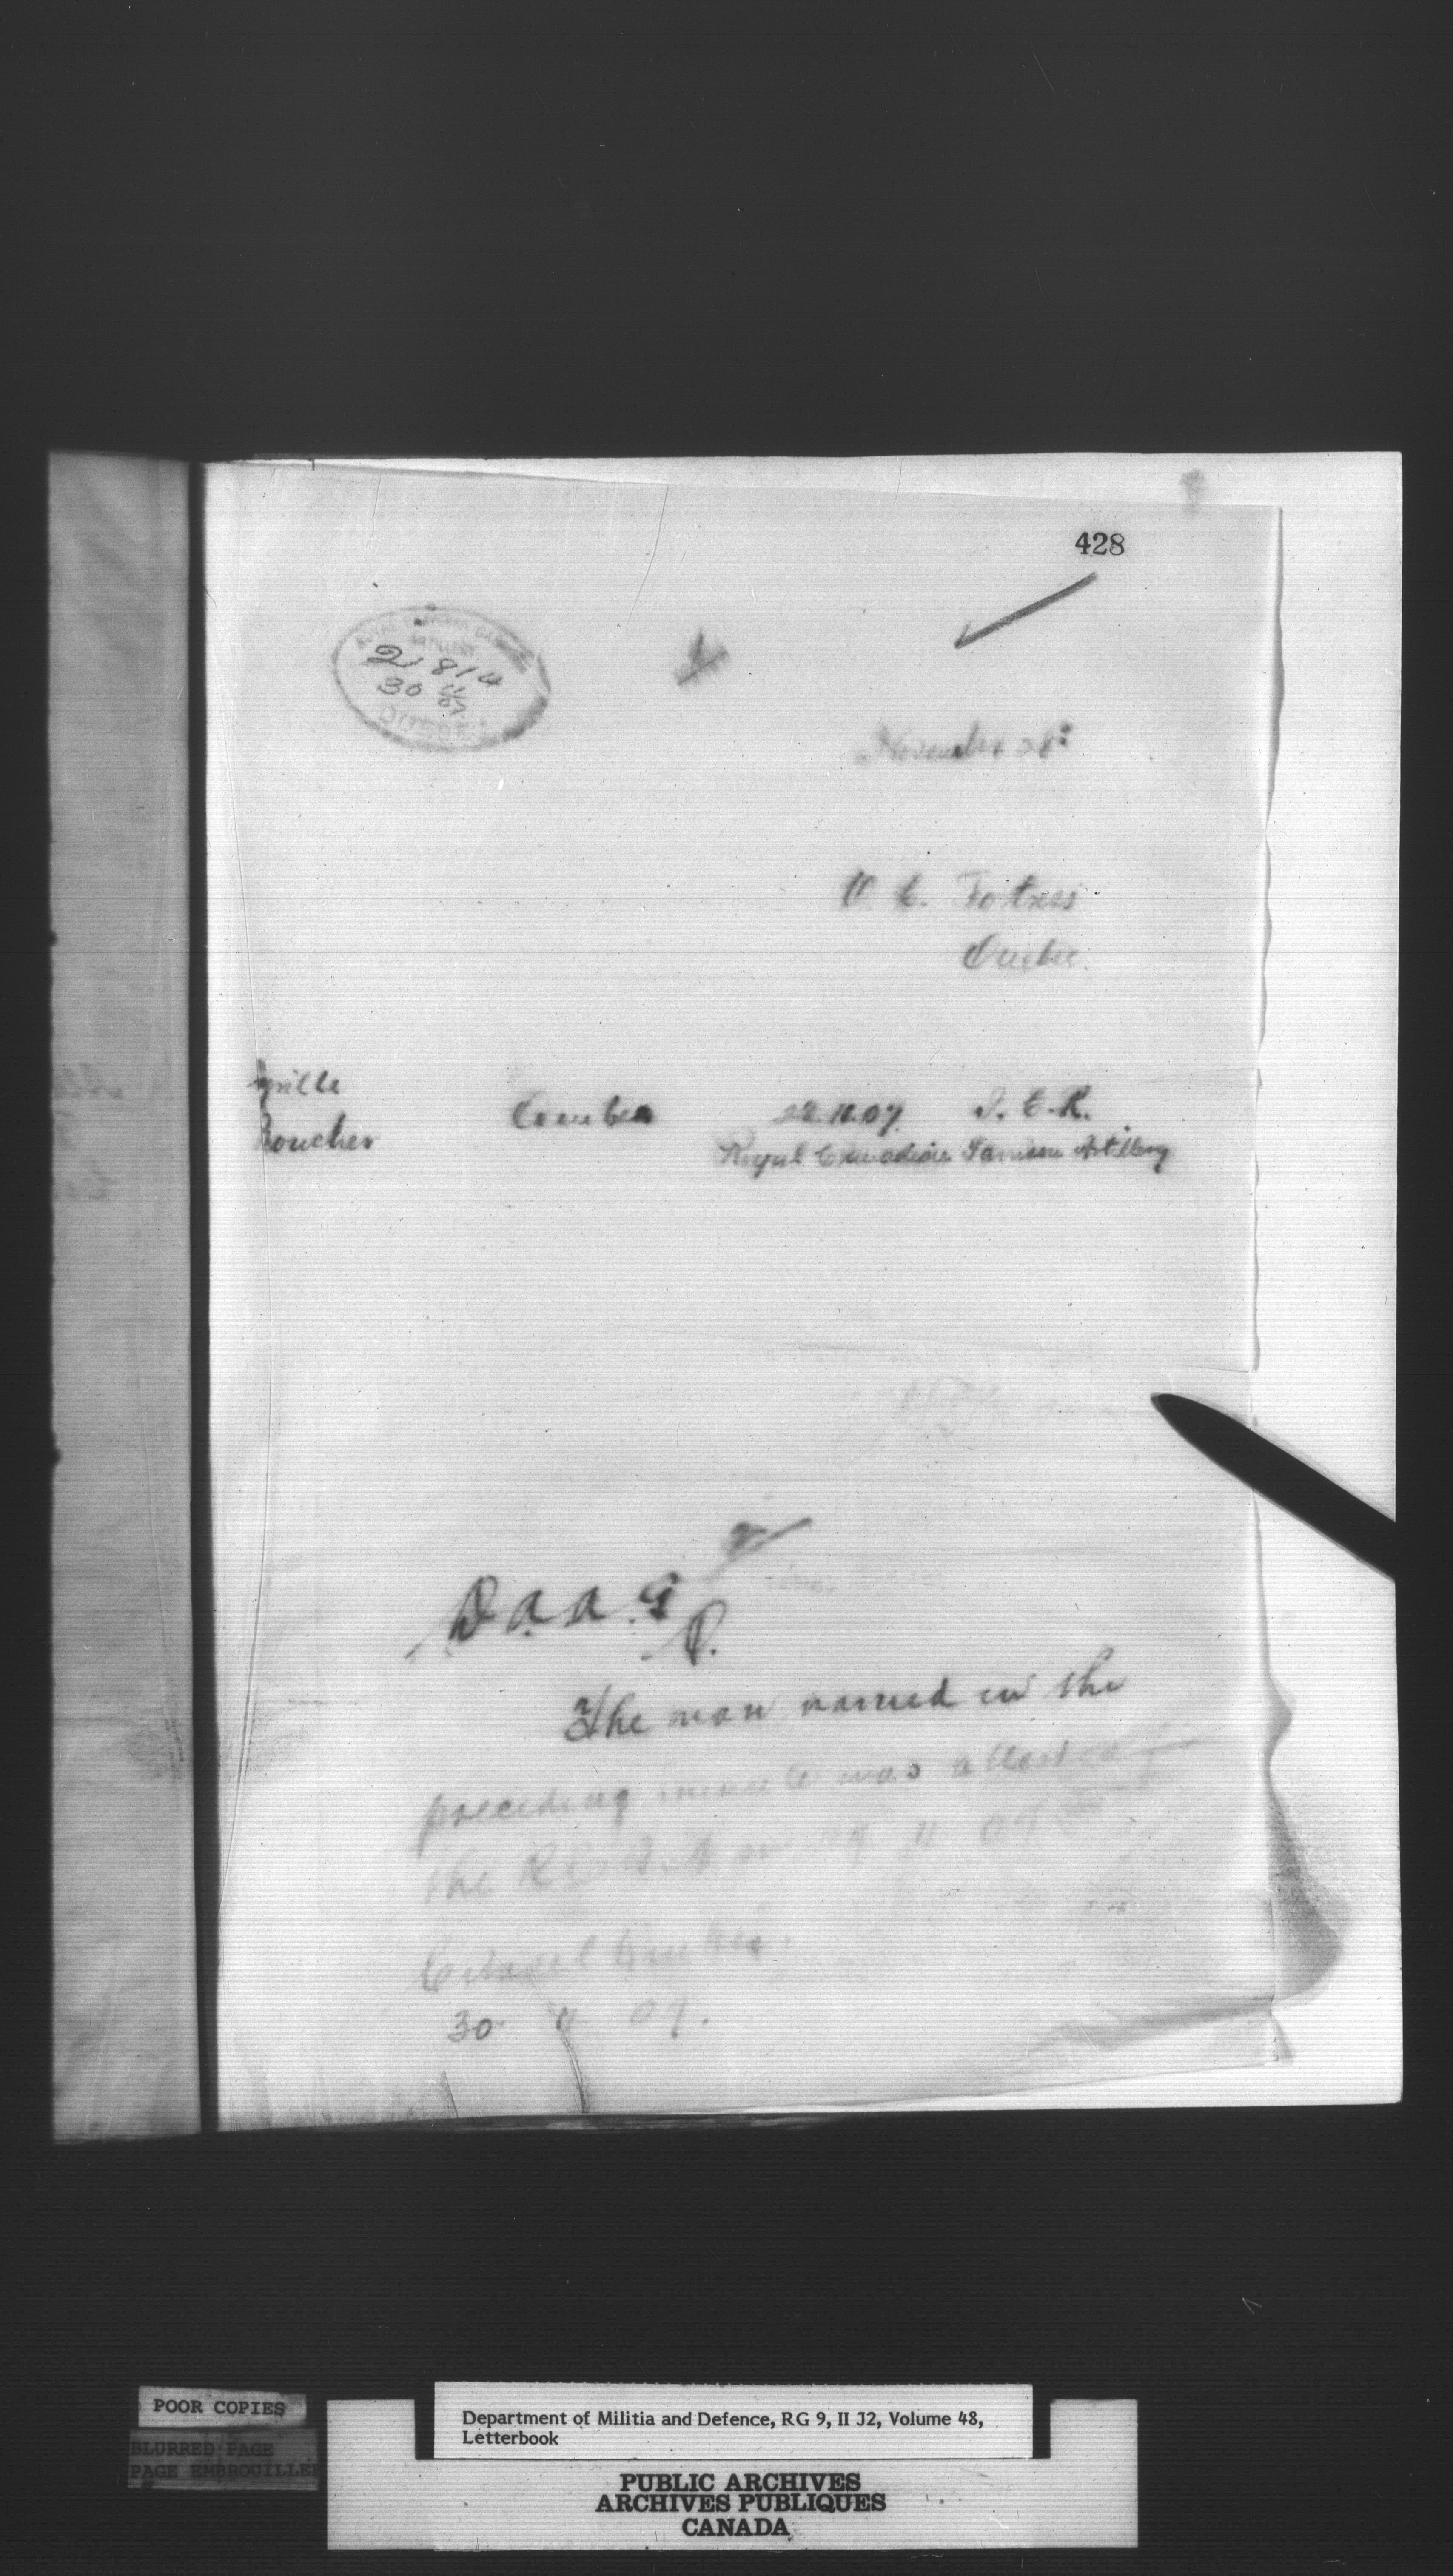 428
ROYAL CANADIAN GARRISON
ARTILLERY
2 814
30 11/07
QUEBEC
1
November 28
O. C. Fortress
Quebec.
yrille
Boucher
Quebec 28.11.07. I.C.R.
Royal Canadian Garrison Artillery
2
D.A.A.G
P.
The man named in the
preceding minute was attested
the R.C.G.A on 29 11 07
Citadel Quebec.
30 11 07.
POOR COPIES
BLURRED PAGE
PAGE EMBROUILLEE
Department of Militia and Defence, RG 9, II J2, Volume 48,
Letterbook
PUBLIC ARCHIVES
ARCHIVES PUBLIQUES
CANADA